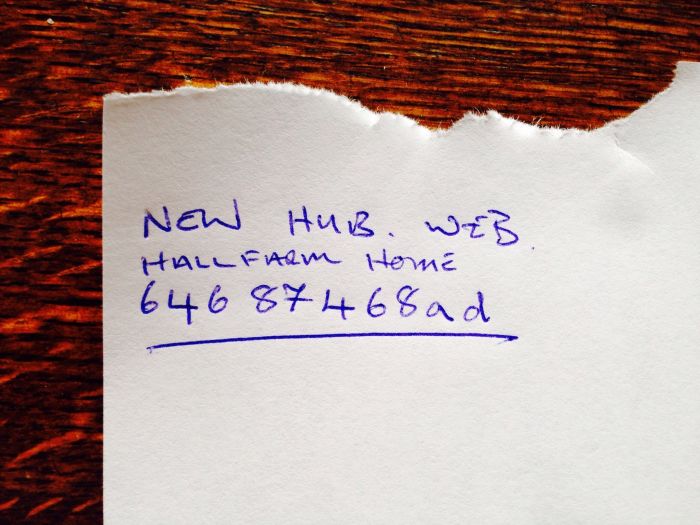 NEW HUB. WEB.
HALLFARM HOME
646 87468ad